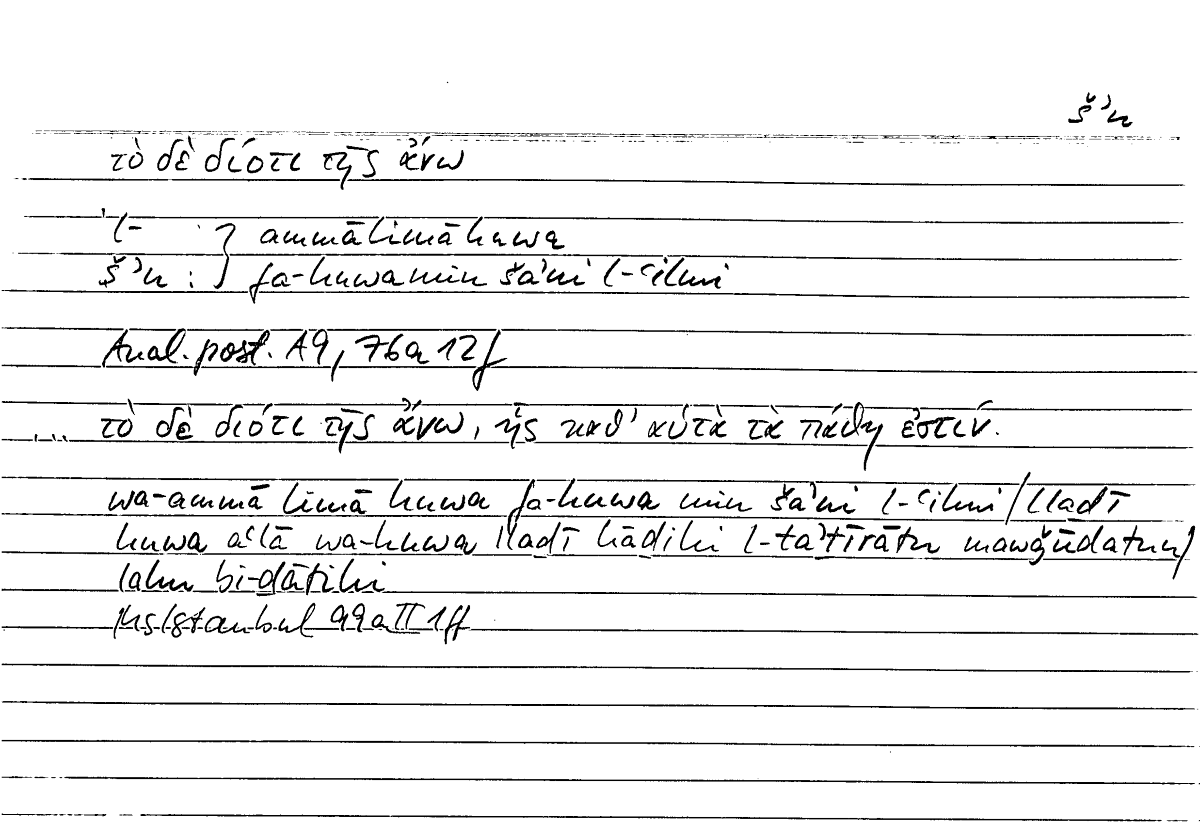 šʾn
τὸ δὲ διότι τῆς ἄνω
ʾl- } ammā limā huwa
šʾn : } fa-huwa min šaʾni l-ʿilmi
Anal. post. A9, 76a12f
... τὸ δὲ διότι τῆς ἄνω, ἧς καθ' αὑτὰ τὰ πάθη ἐστίν.
wa-ammā limā huwa fa-huwa min šaʾni l-ʿilmi / lladī
huwa aʿlā wa-huwa lladī hādihi l-taʾtīrātu mawǧūdatun /
lahu bi-dātihi
Hs Istanbul 99a II 1ff